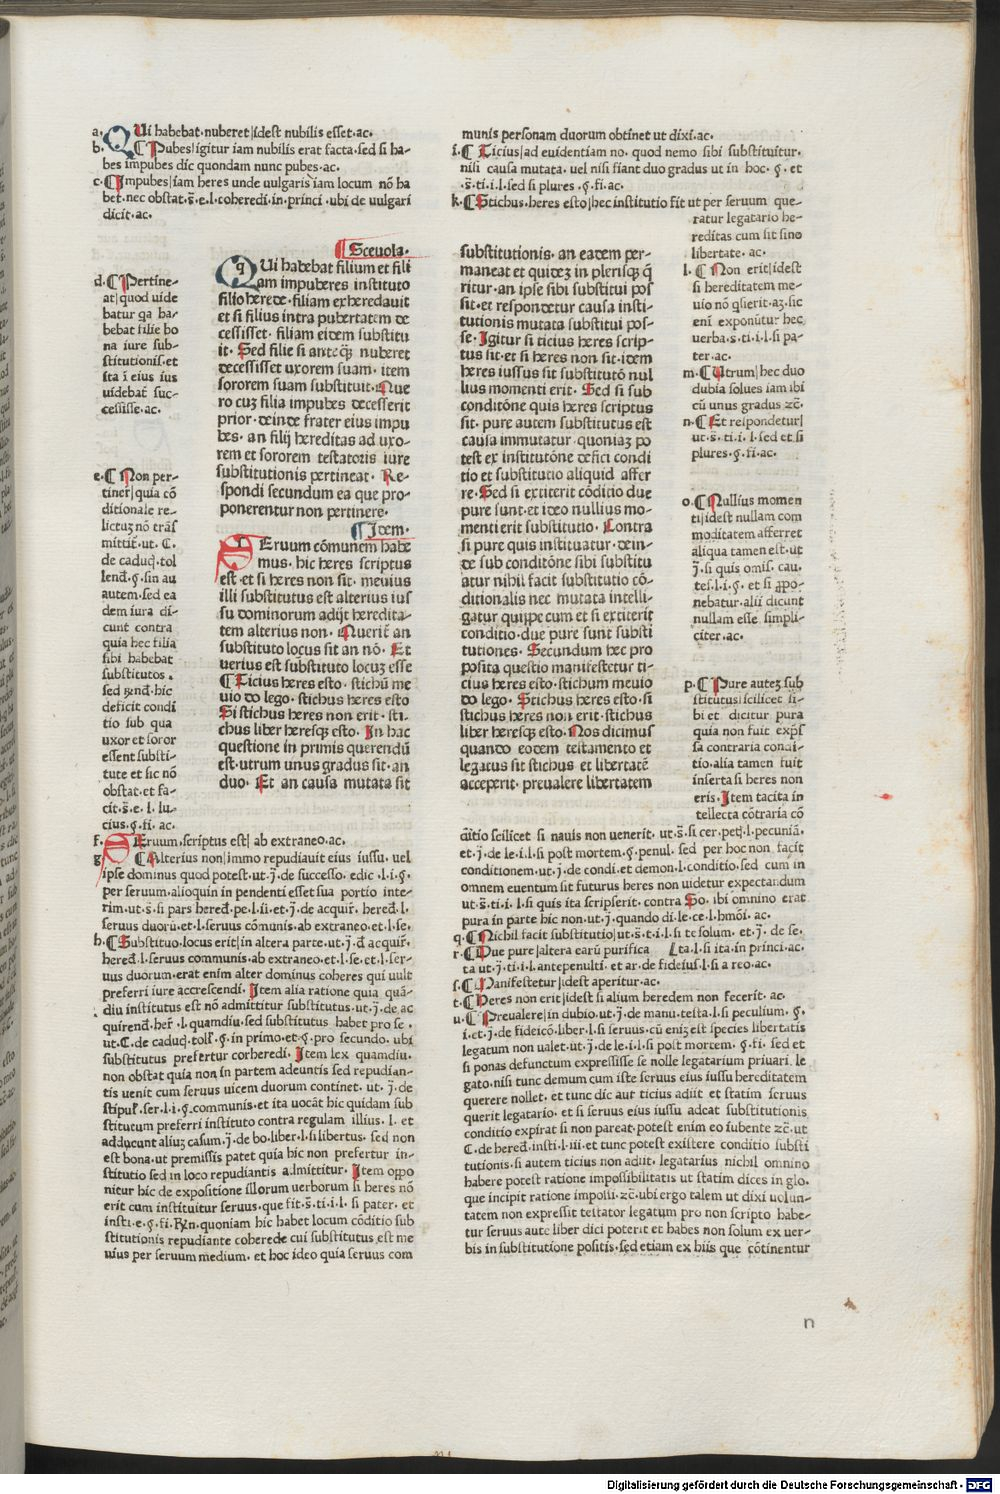 a. QUi habebat·nuberet|idest nubilis esset·ac.
b. ¶ Pubes|igitur iam nubilis erat facta·sed si ha-
bes impubes dic quondam nunc pubes·ac.
c. ¶ Impubes|iam heres unde uulgaris iam locum nō ha
bet·nec obstat·s̄·e·l·coheredi·in·princi·ubi de uulgari
dicit·ac.
d. ¶ Pertine-
at|quod uide
batur qa ha-
bebat filie bo
na iure sub-
stitutionis·et
sta ī eius ius
uidebat suc-
cessisse·ac.
e. ¶ Non per-
tiner|quia cō
ditionale re-
lictuʒ nō trās
mittit̄·ut·C·
de caduq̄·tol
lend̄·§·sin au
autem·sed ea
dem iura di-
cunt contra
quia hec filia
sibi habebat
substitutos·
sed gn̄d·hic
deficit condi
tio sub qua
uxor et soror
essent substi-
tute et sic nō
obstat·et fa-
cit·s̄·e·l·lu-
cius·§·fi·ac.
¶ Sceuola·
QUi habebat filium et fili
am impuberes instituto
filio herede·filiam exheredauit
et si filius intra pubertatem de
cessisset·filiam eidem substitu
it·Sed filie si anteq̄ʒ nuberet
decessisset uxorem suam·item
sororem suam substituit·Que
ro cuʒ filia impubes decesserit
prior·deinde frater eius impu
bes·an filij hereditas ad uxo-
rem et sororem testatoris iure
substitutionis pertineat·Re-
spondi secundum ea que pro-
ponerentur non pertinere·
¶ Idem·
SEruum cōmunem habe
mus·hic heres scriptus
est·et si heres non sit·meuius
illi substitutus est alterius ius
su dominorum adijt heredita-
tem alterius non·Querit̄ an
substituto locus sit an nō·Et
uerius est substituto locuʒ esse
¶ Ticius heres esto·stichū me
uio do lego·stichus heres esto
Si stichus heres non erit·sti-
chus liber heresqʒ esto·In hac
questione in primis querendū
est·utrum unus gradus sit·an
duo·Et an causa mutata sit
f. SEruum·scriptus est|ab extraneo·ac.
g ¶ Alterius non|immo repudiauit eius iussu·uel
ipse dominus quod potest·ut·j̄·de successo·edic·l·i·§·
per seruum·alioquin in pendenti esset sua portio inte-
rim·ut·s̄·si pars hered̄·pe·l·ii·et·j̄·de acquir̄·hered̄·l·
seruus duorū·et·l·seruus cōmunis·ab extraneo·et·l·se·
h. ¶ Substituo·locus erit|in altera parte·ut·j̄·d̄ acquir̄·
hered̄·l·seruus communis·ab extraneo·et·l·se·et·l·ser-
uus duorum·erat enim alter dominus coheres qui uult
preferri iure accrescendi·Item alia ratione quia quā-
diu institutus est nō admittitur substitutus·ut·j̄·de ac
quirend̄·her̄·l·quamdiu·sed substitutus habet pro se·
ut·C·de caduq̄·toll̄·§·in primo·et·§·pro secundo·ubi
substitutus prefertur corheredi·Item lex quamdiu·
non obstat quia non in partem adeuntis sed repudian-
tis uenit cum seruus uicem duorum continet·ut·j̄·de
stipul̄·ser·l·i·§·communis·et ita uocāt hic quidam sub
stitutum preferri instituto contra regulam illius·l·et
adducunt aliuʒ casum·j̄·de bo·liber·l·si libertus·sed non
est bona·ut premissis patet quia hic non prefertur in-
stitutio sed in loco repudiantis admittitur·Item oppo
nitur hic de expositione illorum uerborum si heres nō
erit cum instituitur seruus·que fit·s̄·ti·i·l·si pater·et
insti·e·§·fi·Rn̄·quoniam hic habet locum cōditio sub
stitutionis repudiante coherede cui substitutus est me
uius per seruum medium·et hoc ideo quia seruus com
munis personam duorum obtinet ut dixi·ac.
i. ¶ Ticius|ad euidentiam no·quod nemo sibi substituitur·
nisi causa mutata·uel nisi fiant duo gradus ut in hoc·§·et
·s̄·ti·i·l·sed si plures·§·fi·ac.
k. ¶ Stichus·heres esto|hec institutio fit ut per seruum que-
ratur legatario he-
reditas cum sit sino
libertate·ac.
l. ¶ Non erit|idest
si hereditatem me-
uio nō q̄sierit·aʒ·sic
enī exponūtur hec
uerba·s̄·ti·i·l·si pa-
ter·ac.
m. ¶ Utrum|hec duo
dubia solues iam ibi
cū unus gradus ʒc̄·
n. ¶ Et respondetur|
ut·s̄·ti·i·l·sed et si
plures·§·fi·ac.
o. ¶ Nullius momen
ti|idest nullam com
moditatem afferret
aliqua tamen est·ut
j̄·si quis omis·cau·
tes·l·i·§·et si ꝓpo-
nebatur·alii dicunt
nullam esse simpli-
citer·ac.
p. ¶ Pure auteʒ sub
stitutus|scilicet si-
bi et dicitur pura
quia non fuit exp̄s
sa contraria condi-
tio·alia tamen fuit
inserta si heres non
eris·Item tacita in
tellecta cōtraria cō
substitutionis·an eadem per-
maneat et quideʒ in plerisqʒ q̄
ritur·an ipse sibi substitui pos
sit·et respondetur causa insti-
tutionis mutata substitui pos-
se·Igitur si ticius heres scrip-
tus sit·et si heres non sit·idem
heres iussus sit substitutō nul
lius momenti erit·Sed si sub
conditōne quis heres scriptus
sit·pure autem substitutus est
causa immutatur·quoniaʒ po
test ex institutōne defici condi
tio et substitutio aliquid affer
re·Sed si extiterit cōditio due
pure sunt·et ideo nullius mo-
menti erit substitutio·Contra
si pure quis instituatur·dein-
de sub conditōne sibi substitu
atur nihil facit substitutio cō-
ditionalis nec mutata intelli-
gatur quippe cum et si extiterit
conditio·due pure sunt substi
tutiones·Secundum hec pro
posita questio manifestetur ti-
cius heres esto·stichum meuio
do lego·Stichus heres esto·si
stichus heres non erit·stichus
liber heresqʒ esto·Nos dicimus
quando eodem testamento et
legatus sit stichus et libertatē
acceperit·preualere libertatem
ditio scilicet si nauis non uenerit·ut·s̄·si cer·petj·l·pecuniā·
et·j̄·de le·i·l·si post mortem·§·penul·sed per hoc non facit
conditionem·ut·j̄·de condi·et demon·l·conditio·sed cum in
omnem euentum sit futurus heres non uidetur expectandum
ut·s̄·ti·i·l·si quis ita scripserit·contra So·ibi omnino erat
pura in parte hic non·ut·j̄·quando di·le·ce·l·hmōi·ac.
q. ¶ Nichil facit substitutio|ut·s̄·t·i·l·si te solum·et·j̄·de se·
r. ¶ Due pure|altera earū purifica ta·l·si ita·in princi·ac·
ta ut·j̄·ti·i·l·antepenulti·et ar·de fideius·l·si a reo·ac.
s. ¶ Manifestetur|idest aperitur·ac.
t. ¶ Heres non erit|idest si alium heredem non fecerit·ac.
u. ¶ Preualere|in dubio·ut·j̄·de manu·testa·l·si peculium·§·
i·et·j̄·de fideicō·liber·l·si seruus·cū eniʒ est species libertatis
legatum non ualet·ut·j̄·de le·i·l·si post mortem·§·fi·sed et
si ponas defunctum expressisse se nolle legatarium priuari·le
gato·nisi tunc demum cum iste seruus eius iussu hereditatem
querere nollet·et tunc dic aut ticius adiit et statim seruus
querit legatario·et si seruus eius iussu adeat substitutionis
conditio expirat si non pareat·potest enim eo iubente ʒc̄·ut
C·de hered̄·insti·l·iii·et tunc potest existere conditio substi
tutionis·si autem ticius non adiit·legatarius nichil omnino
habere potest ratione impossibilitatis ut statim dices in glo·
que incipit ratione impossi·ʒc̄·ubi ergo talem ut dixi uolun-
tatem non expressit testator legatum pro non scripto habe-
tur seruus aute liber dici poterit et habes non solum ex uer-
bis in substitutione positis·sed etiam ex hiis que cōtinentur
n
Digitalisierung gefördert durch die Deutsche Forschungsgemeinschaft - DFG